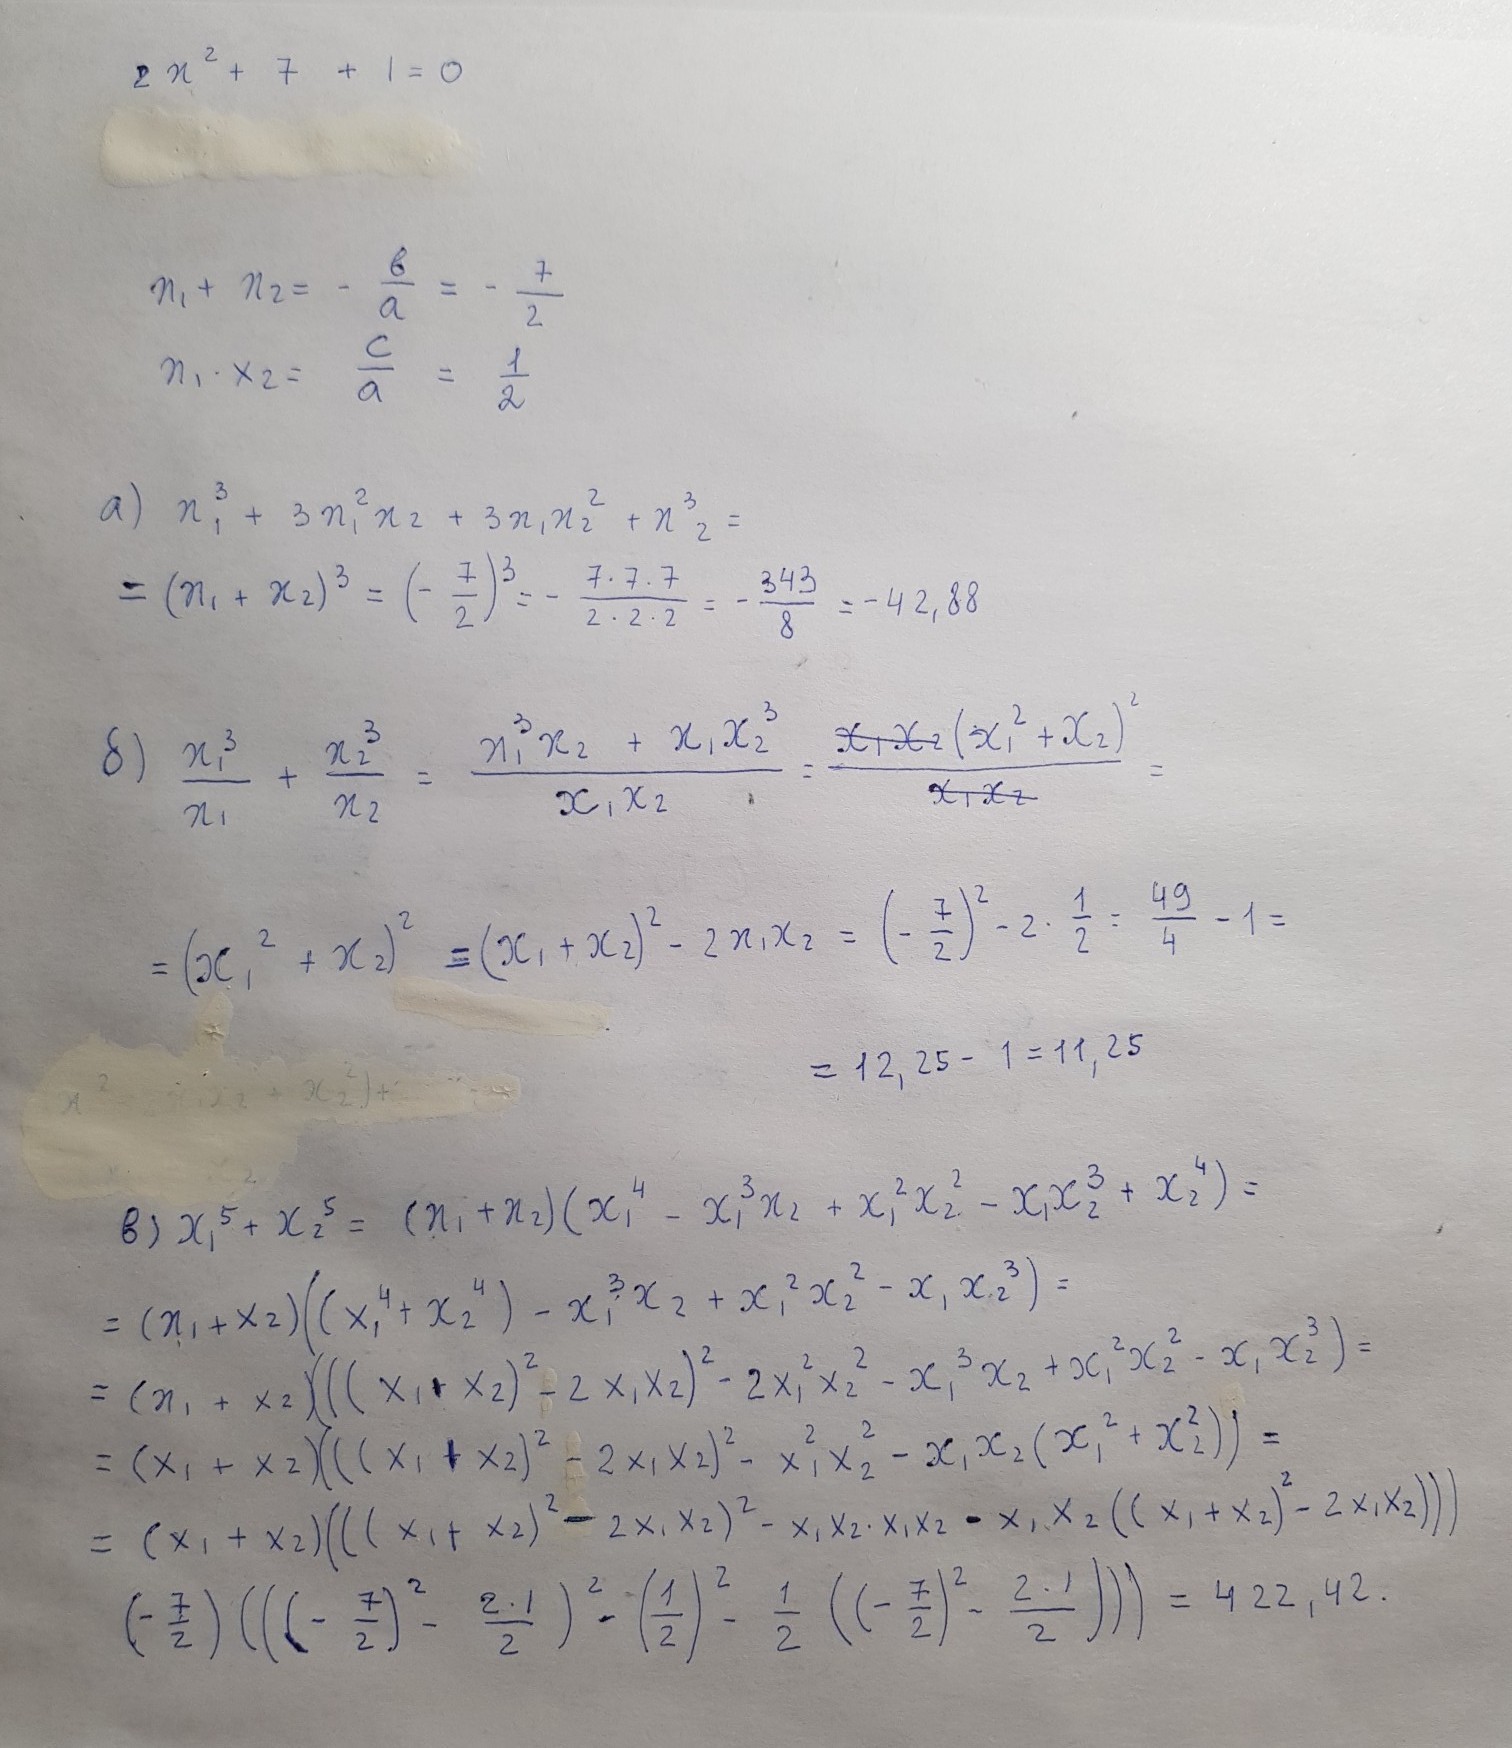 2x² + 7 + 1 = 0
x₁ + x₂ = - в/a = - 7/2
x₁ · x₂ = c/a = 1/2
а) x₁³ + 3x₁²x₂ + 3x₁x₂² + x³₂ =
= (x₁ + x₂)³ = (- 7/2)³ = - (7·7·7)/(2·2·2) = - 343/8 = -42,88
б) x₁³/x₁ + x₂³/x₂ = (x₁³x₂ + x₁x₂³)/(x₁x₂) = x₁x₂(x₁² + x₂)²/(x₁x₂) =
= (x₁² + x₂)² = (x₁ + x₂)² - 2x₁x₂ = (- 7/2)² - 2 · 1/2 = 49/4 - 1 =
= 12,25 - 1 = 11,25
в) x₁⁵ + x₂⁵ = (x₁ + x₂)(x₁⁴ - x₁³x₂ + x₁²x₂² - x₁x₂³ + x₂⁴) =
= (x₁ + x₂)((x₁⁴ + x₂⁴) - x₁³x₂ + x₁²x₂² - x₁x₂³) =
= (x₁ + x₂)(((x₁ + x₂)² - 2x₁x₂)² - 2x₁²x₂² - x₁³x₂ + x₁²x₂² - x₁x₂³) =
= (x₁ + x₂)(((x₁ + x₂)² - 2x₁x₂)² - x₁²x₂² - x₁x₂(x₁² + x₂²)) =
= (x₁ + x₂)(((x₁ + x₂)² - 2x₁x₂)² - x₁x₂·x₁x₂ - x₁x₂((x₁ + x₂)² - 2x₁x₂)))
(- 7/2)(((- 7/2)² - (2·1)/2)² - (1/2)² - 1/2((- 7/2)² - (2·1)/2))) = 422,42.